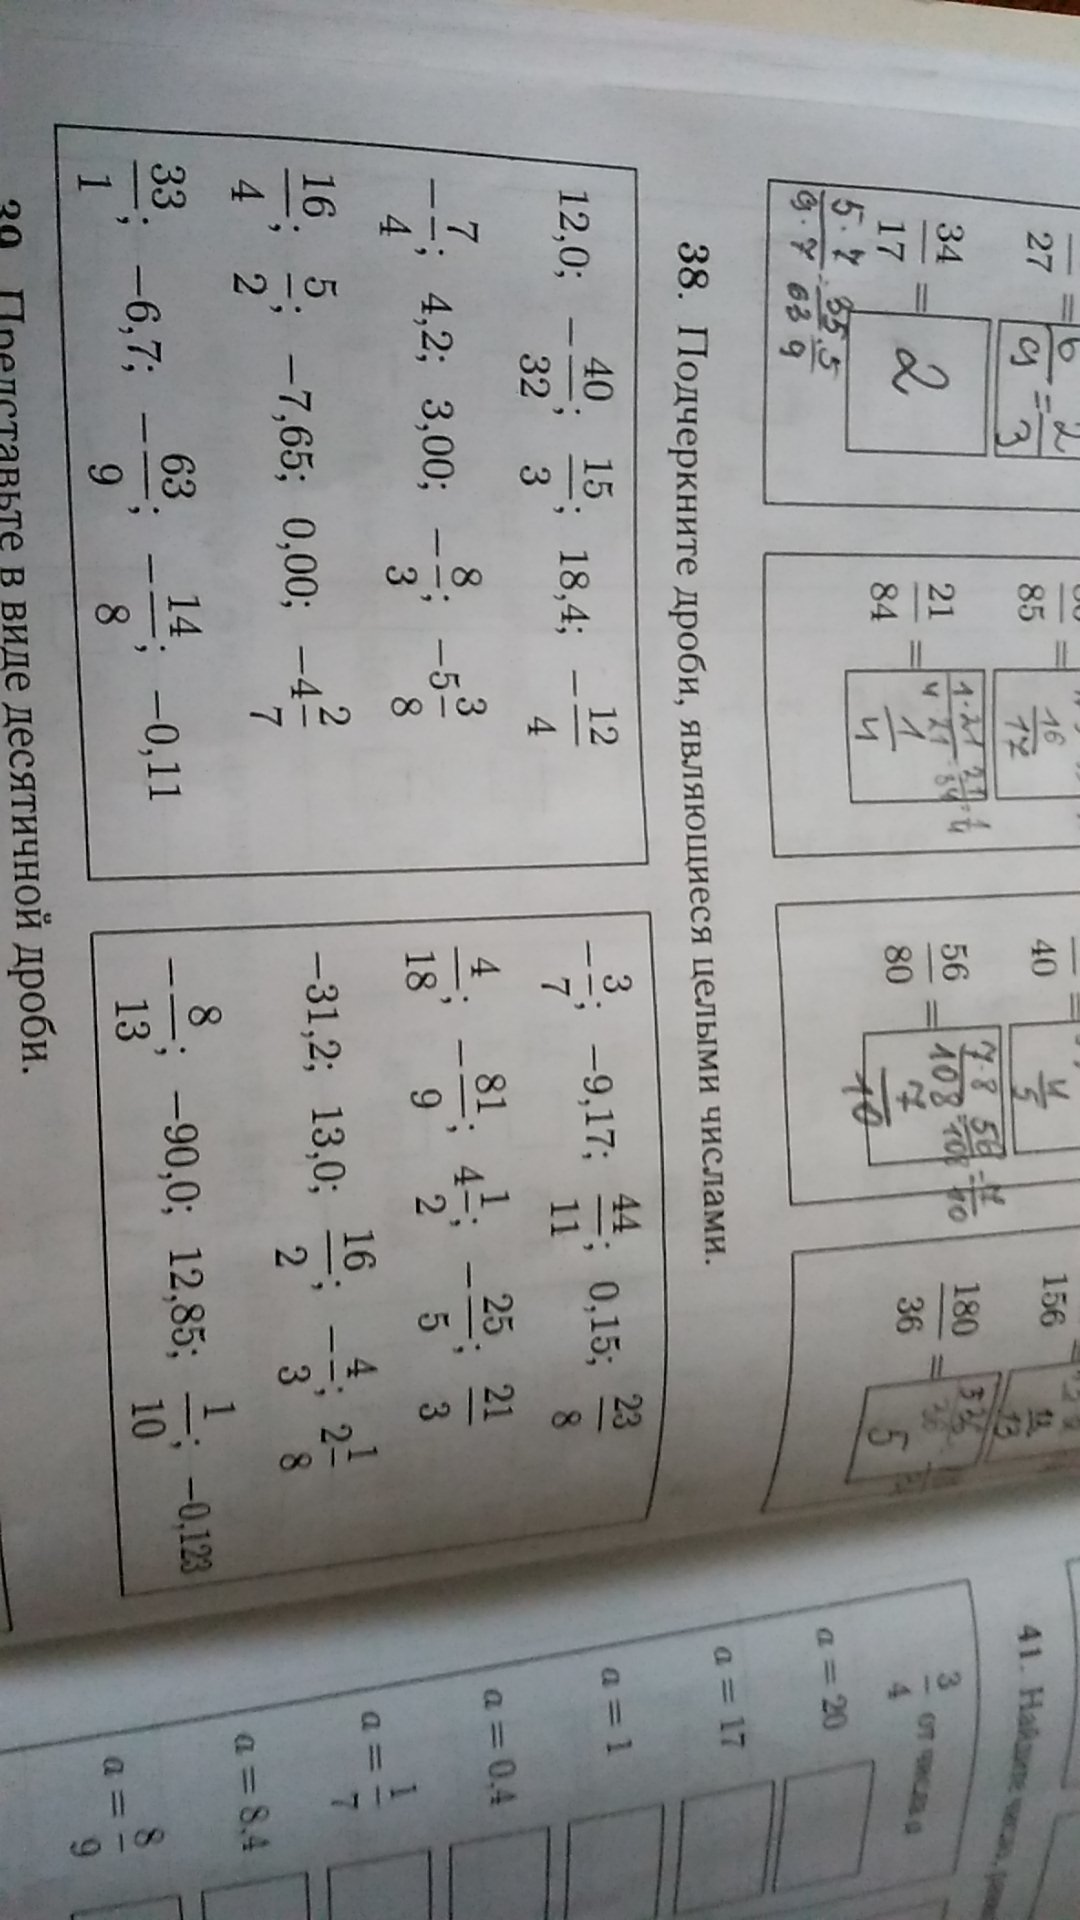 27 = 6/9 = 2/3
85 = 16/17
40 = 4/5
156
34/17 = 2
21/84 = 1/4
56/80 = 7/10
180/36 = 5
5·7/9·7 = 35/63 5/9
38. Подчеркните дроби, являющиеся целыми числами.
12,0; −40/32; 15/3; 18,4; −12/4
−7/4; 4,2; 3,00; −8/3; −5 3/8
16/4; 5/2; −7,65; 0,00; −4 2/7
33/1; −6,7; −63/9; −14/8; −0,11
−3/7; −9,17; 44/11; 0,15; 23/8
4/18; −81/9; 4 1/2; −25/5; 21/3
−31,2; 13,0; 16/2; −4/3; 2 1/8
−8/13; −90,0; 12,85; 1/10; −0,123
39. Представьте в виде десятичной дроби.
41. Найдите число,
3/4 от числа a
a = 20
a = 17
a = 1
a = 0,4
a = 1/7
a = 8,4
a = 8/9